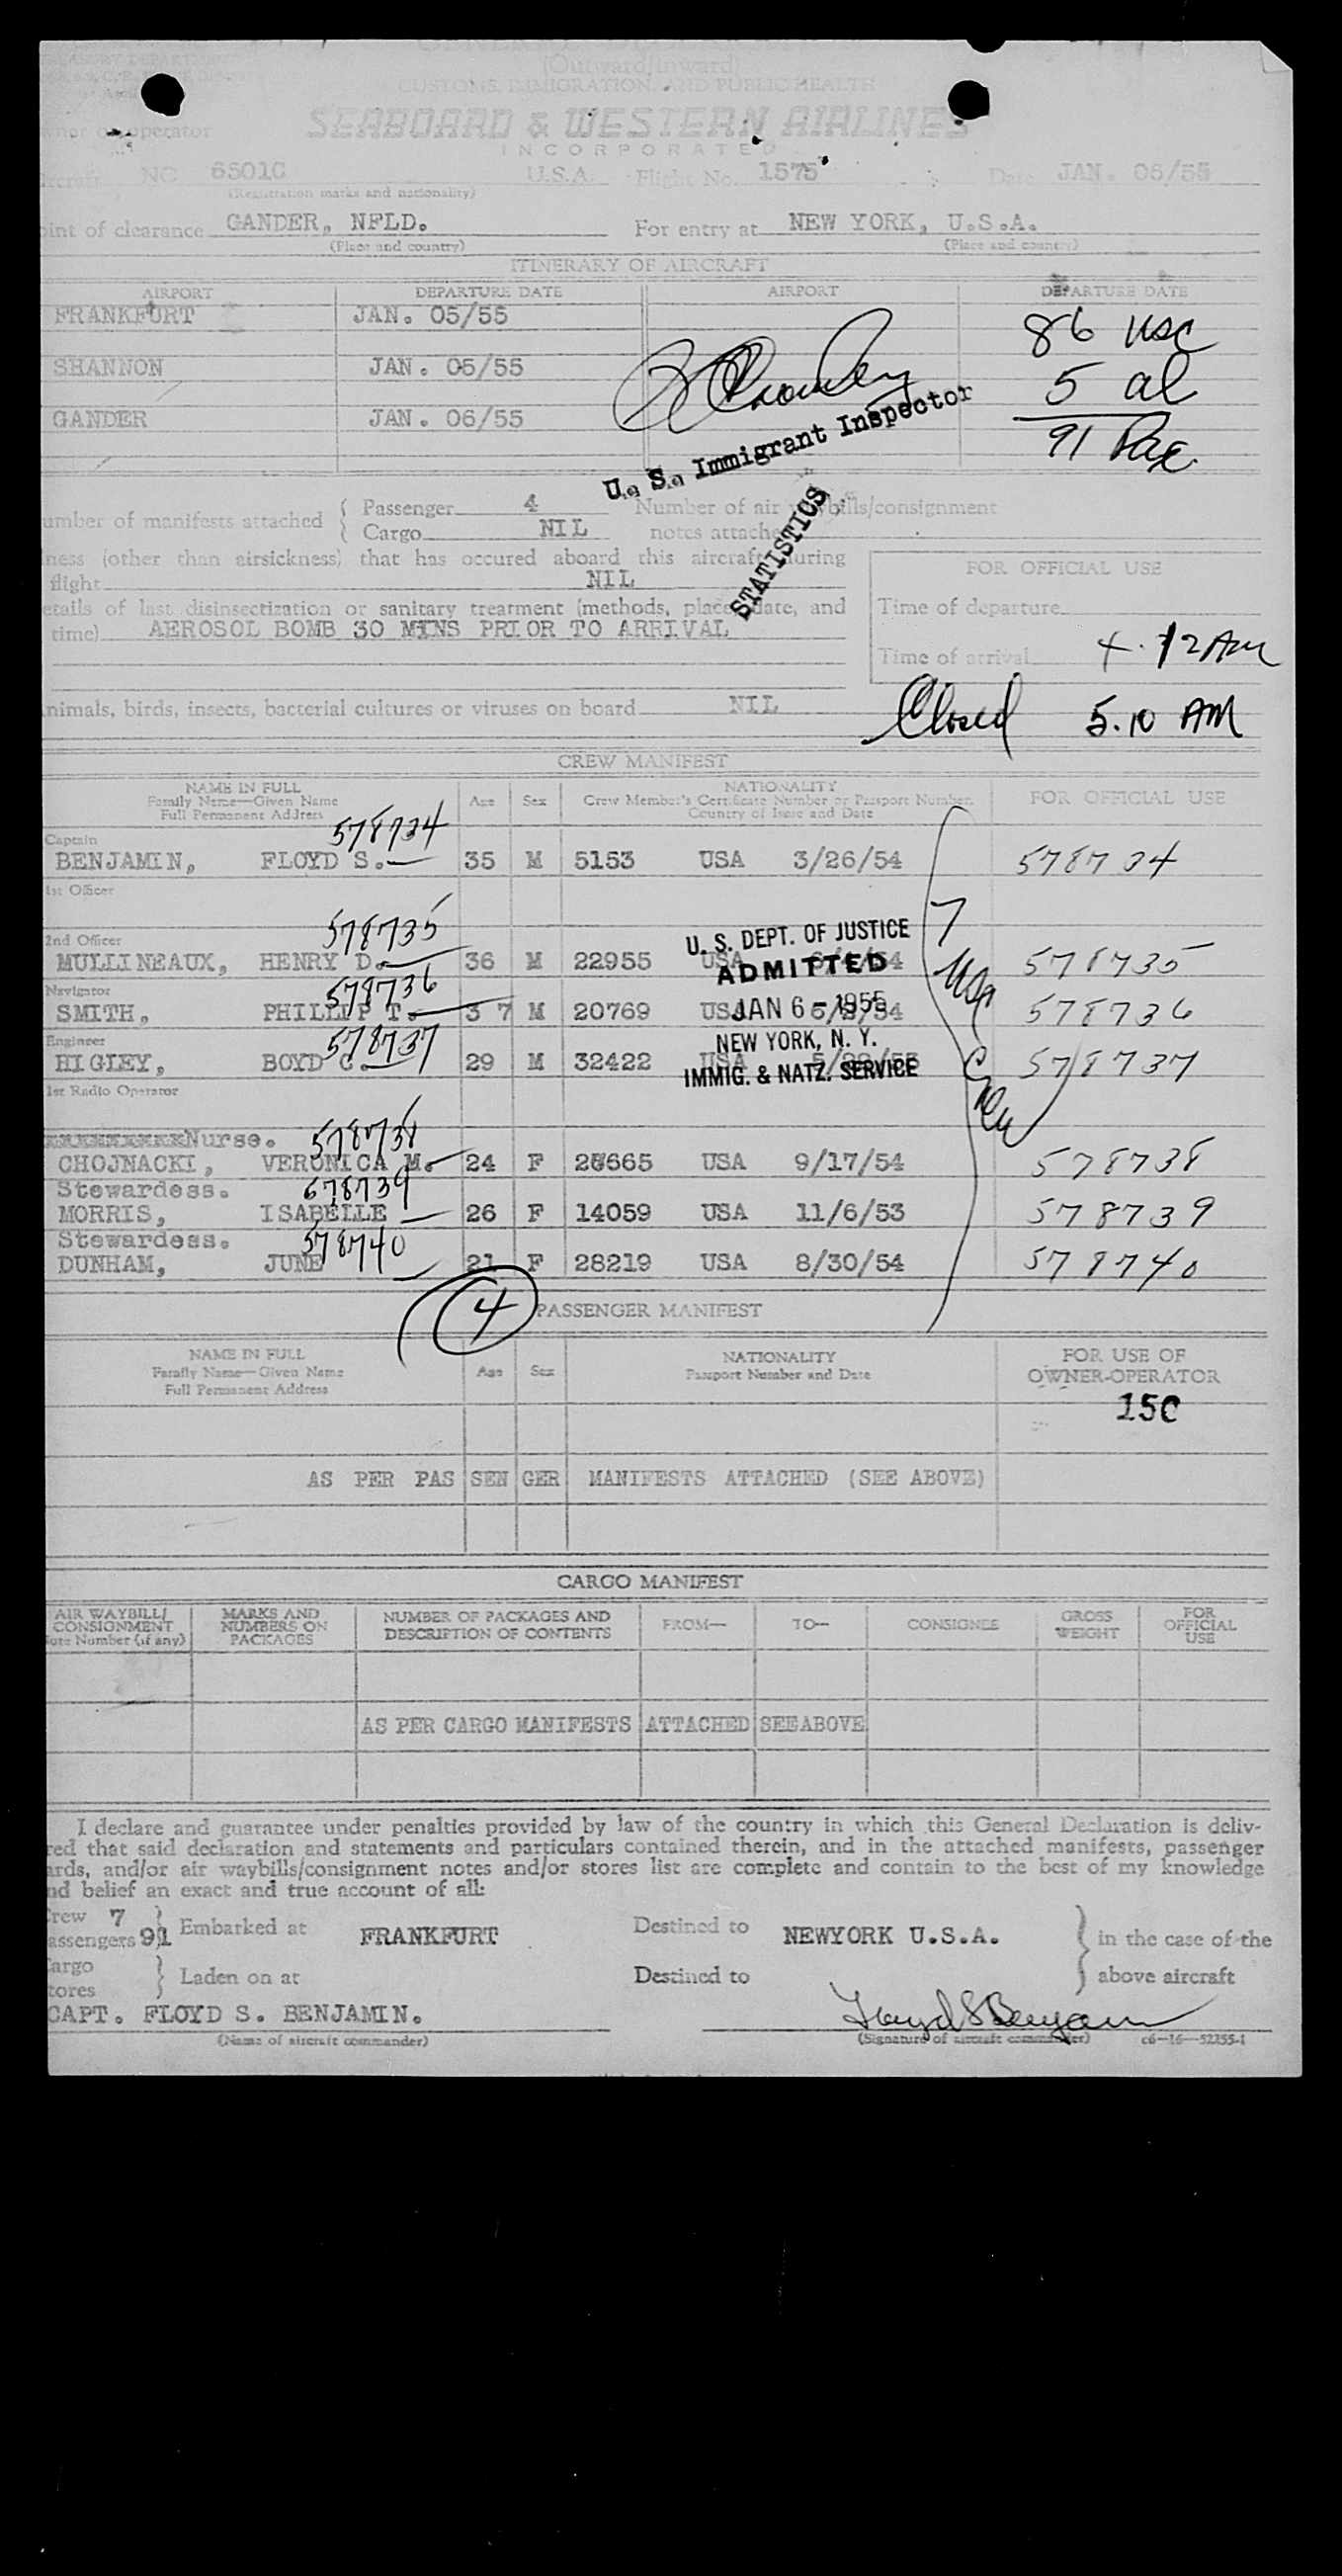 (Outward/Inward)
CUSTOMS, IMMIGRATION, AND PUBLIC HEALTH
operator
SEABOARD & WESTERN AIRLINES
INCORPORATED
NC 6501C U.S.A. Flight No. 1575 Date JAN. 06/55
(Registration marks and nationality)
oint of clearance GANDER, NFLD. For entry at NEW YORK, U.S.A.
(Place and country) (Place and country)
ITINERARY OF AIRCRAFT
AIRPORT DEPARTURE DATE AIRPORT DEPARTURE DATE
FRANKFURT JAN. 05/55 86 usc
SHANNON JAN. 05/55 5 al
GANDER JAN. 06/55 91 Pax
U. S. Immigrant Inspector
STATISTICS
umber of manifests attached { Passenger 4 Number of air waybills/consignment
Cargo NIL notes attache
lness (other than airsickness) that has occured aboard this aircraft during
flight NIL
FOR OFFICIAL USE
etails of last disinsectization or sanitary treatment (methods, place, date, and
time) AEROSOL BOMB 30 MINS PRIOR TO ARRIVAL
Time of departure
Time of arrival 4.12 AM
nimals, birds, insects, bacterial cultures or viruses on board NIL
Closed 5.10 AM
CREW MANIFEST
NAME IN FULL Age Sex NATIONALITY FOR OFFICIAL USE
Family Name—Given Name Crew Member's Certificate Number or Passport Number
Full Permanent Address Country of Issue and Date
Captain 578734
BENJAMIN, FLOYD S. 35 M 5153 USA 3/26/54 578734
1st Officer
2nd Officer 578735
MULLINEAUX, HENRY D. 36 M 22955 USA 578735
Navigator 578736
SMITH, PHILLIP T. 37 M 20769 578736
Engineer 578737
HIGLEY, BOYD C. 29 M 32422 USA 578737
U. S. DEPT. OF JUSTICE
ADMITTED
JAN 6 - 1955
NEW YORK, N. Y.
IMMIG. & NATZ. SERVICE
7 USA Crew
1st Radio Operator
Nurse. 578738
CHOJNACKI, VERONICA M. 24 F 28665 USA 9/17/54 578738
Stewardess. 578739
MORRIS, ISABELLE 26 F 14059 USA 11/6/53 578739
Stewardess. 578740
DUNHAM, JUNE 21 F 28219 USA 8/30/54 578740
4 PASSENGER MANIFEST
NAME IN FULL Age Sex NATIONALITY FOR USE OF
Family Name—Given Name Passport Number and Date OWNER-OPERATOR
Full Permanent Address
15C
AS PER PASSENGER MANIFESTS ATTACHED (SEE ABOVE)
CARGO MANIFEST
AIR WAYBILL/ MARKS AND NUMBER OF PACKAGES AND FROM— TO— CONSIGNEE GROSS FOR
CONSIGNMENT NUMBERS ON DESCRIPTION OF CONTENTS WEIGHT OFFICIAL
ote Number (if any) PACKAGES USE
AS PER CARGO MANIFESTS ATTACHED SEE ABOVE
I declare and guarantee under penalties provided by law of the country in which this General Declaration is deliv-
red that said declaration and statements and particulars contained therein, and in the attached manifests, passenger
ards, and/or air waybills/consignment notes and/or stores list are complete and contain to the best of my knowledge
nd belief an exact and true account of all:
rew 7
assengers 91 } Embarked at FRANKFURT Destined to NEWYORK U.S.A. } in the case of the
argo
tores } Laden on at Destined to above aircraft
CAPT. FLOYD S. BENJAMIN. Floyd S Benjamin
(Name of aircraft commander) (Signature of aircraft commander) c6—16—52255-1